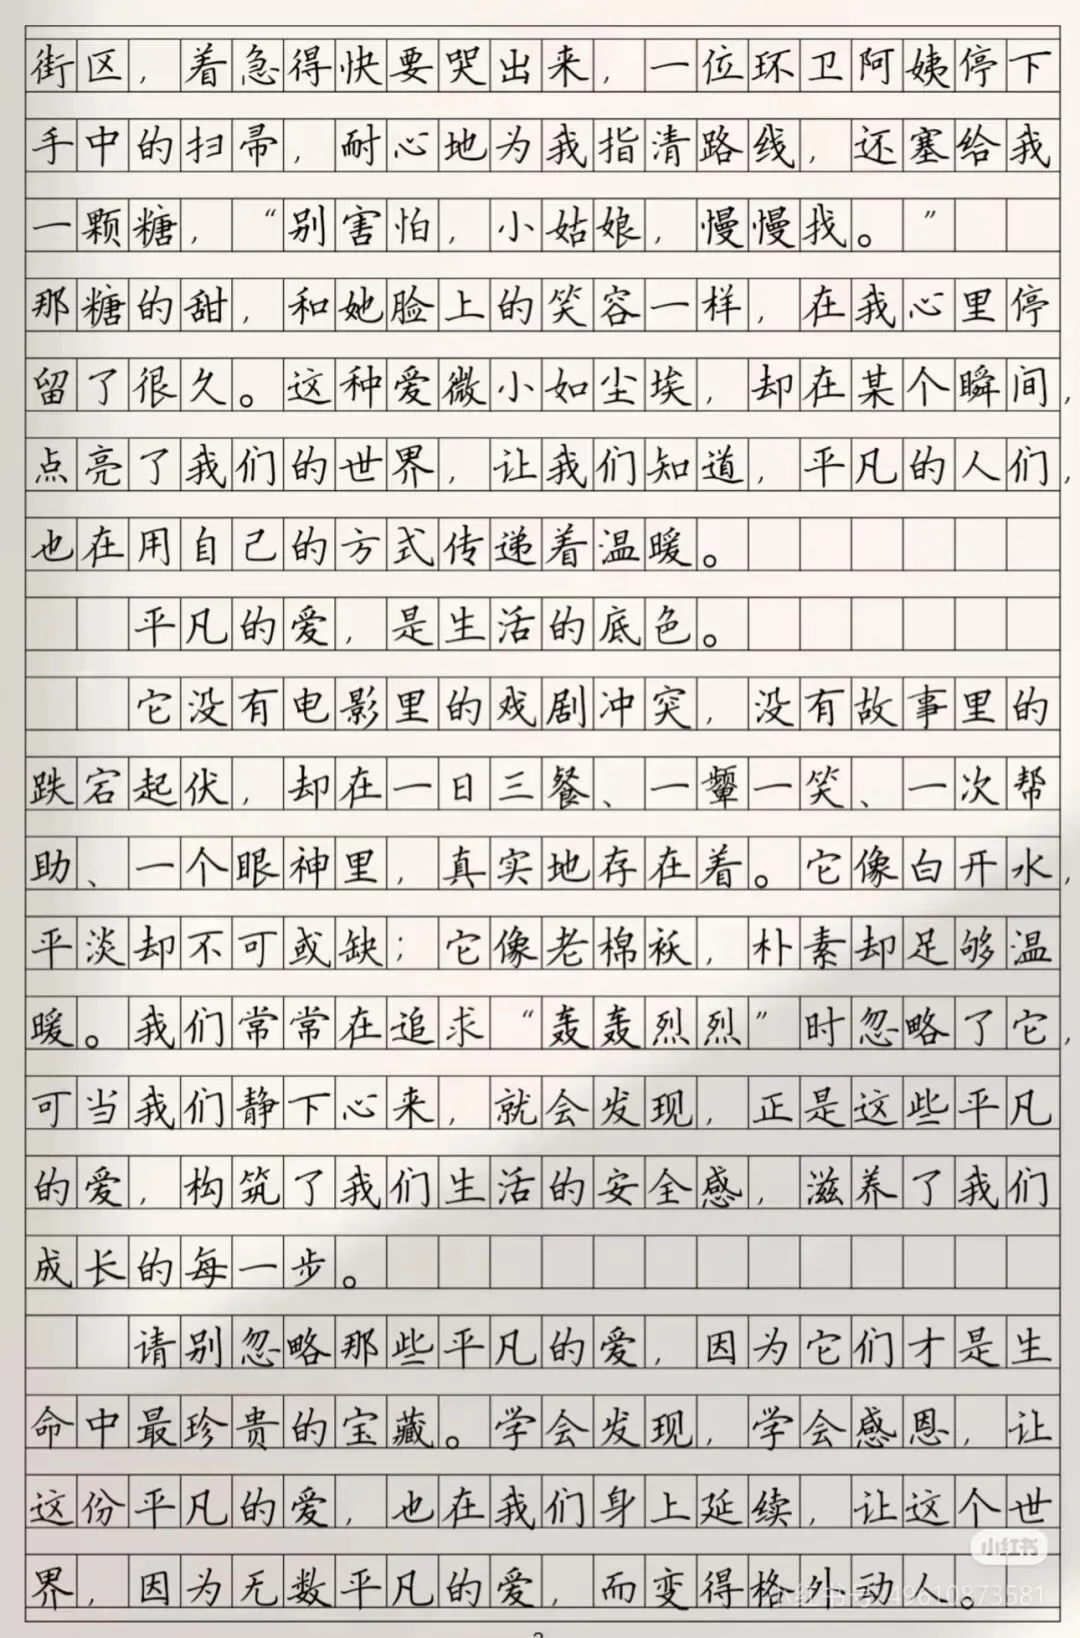 街区，着急得快要哭出来，一位环卫阿姨停下
手中的扫帚，耐心地为我指清路线，还塞给我
一颗糖，“别害怕，小姑娘，慢慢找。”
那糖的甜，和她脸上的笑容一样，在我心里停
留了很久。这种爱微小如尘埃，却在某个瞬间，
点亮了我们的世界，让我们知道，平凡的人们，
也在用自己的方式传递着温暖。
平凡的爱，是生活的底色。
它没有电影里的戏剧冲突，没有故事里的
跌宕起伏，却在一日三餐、一颦一笑、一次帮
助、一个眼神里，真实地存在着。它像白开水，
平淡却不可或缺；它像老棉袄，朴素却足够温
暖。我们常常在追求“轰轰烈烈”时忽略了它，
可当我们静下心来，就会发现，正是这些平凡
的爱，构筑了我们生活的安全感，滋养了我们
成长的每一步。
请别忽略那些平凡的爱，因为它们才是生
命中最珍贵的宝藏。学会发现，学会感恩，让
这份平凡的爱，也在我们身上延续，让这个世
界，因为无数平凡的爱，而变得格外动人。
小红书